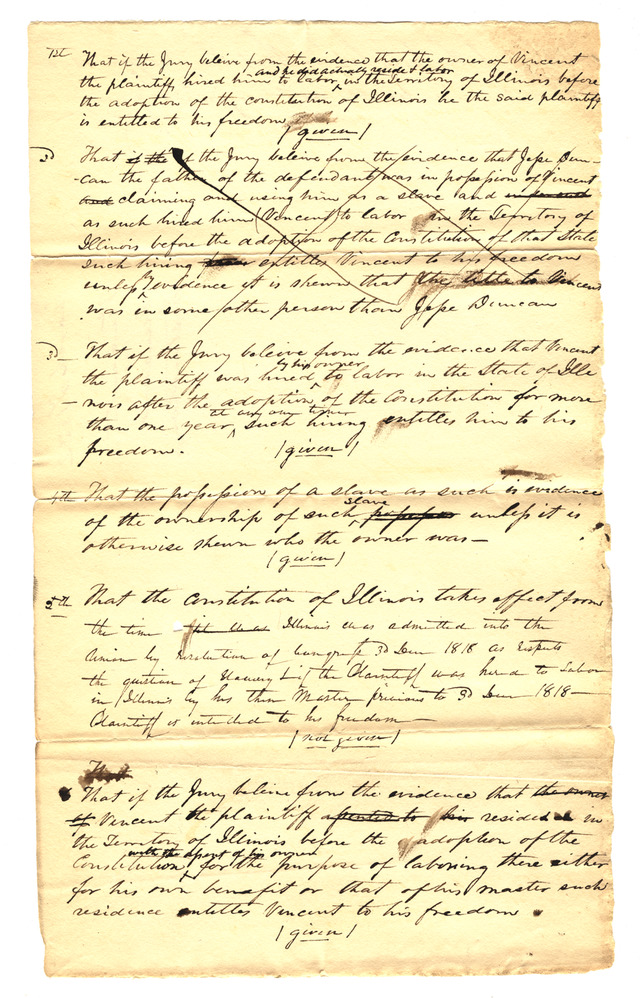 1st That if the Jury beleive from the evidence that the owner of Vincent
and he did actually reside & labor
the plaintiff hired him to labor in the Territory of Illinois before
the adoption of the constitution of Illinois he the said plaintiff
is entitled to his freedom
(given)
That if the Jury beleive from the evidence that Jesse Dun-
-can the father of the defendant was in possession of Vincent
and claiming and using him as a slave and
as such hired him (Vincent) to labor in the Territory of
Illinois before the adoption of the Constitution of that State
such hiring entitles Vincent to his freedom
unless by evidence it is shewn that the title to Vincent
was in some other person than Jesse Duncan
3d That if the Jury beleive from the evidence that Vincent
by his owner
the plaintiff was hired to labor in the State of Illi
-nois after the adoption of the Constitution for more
at any one time
than one year, such hiring entitles him to his
freedom. (given)
4th That the possession of a slave as such is evidence
slave
of the ownership of such unless it is
otherwise shewn who the owner was—
(given)
5th That the Constitution of Illinois takes effect from
the time Illinois was admitted into the
Union by resolution of Congress 3d Decr 1818 as respects
the question of Slavery & if the Plaintiff was hired to Labor
in Illinois by his then Master previous to 3d Decr 1818—
Plaintiff is intitled to his freedom—
(not given)
That
That if the Jury beleive from the evidence that the owner
of Vincent the plaintiff resided in
the Territory of Illinois before the adoption of the
with the assent of his owner
Constitution for the purpose of laboring there either
for his own benefit or that of his master such
residence entitles Vincent to his freedom.
(given)